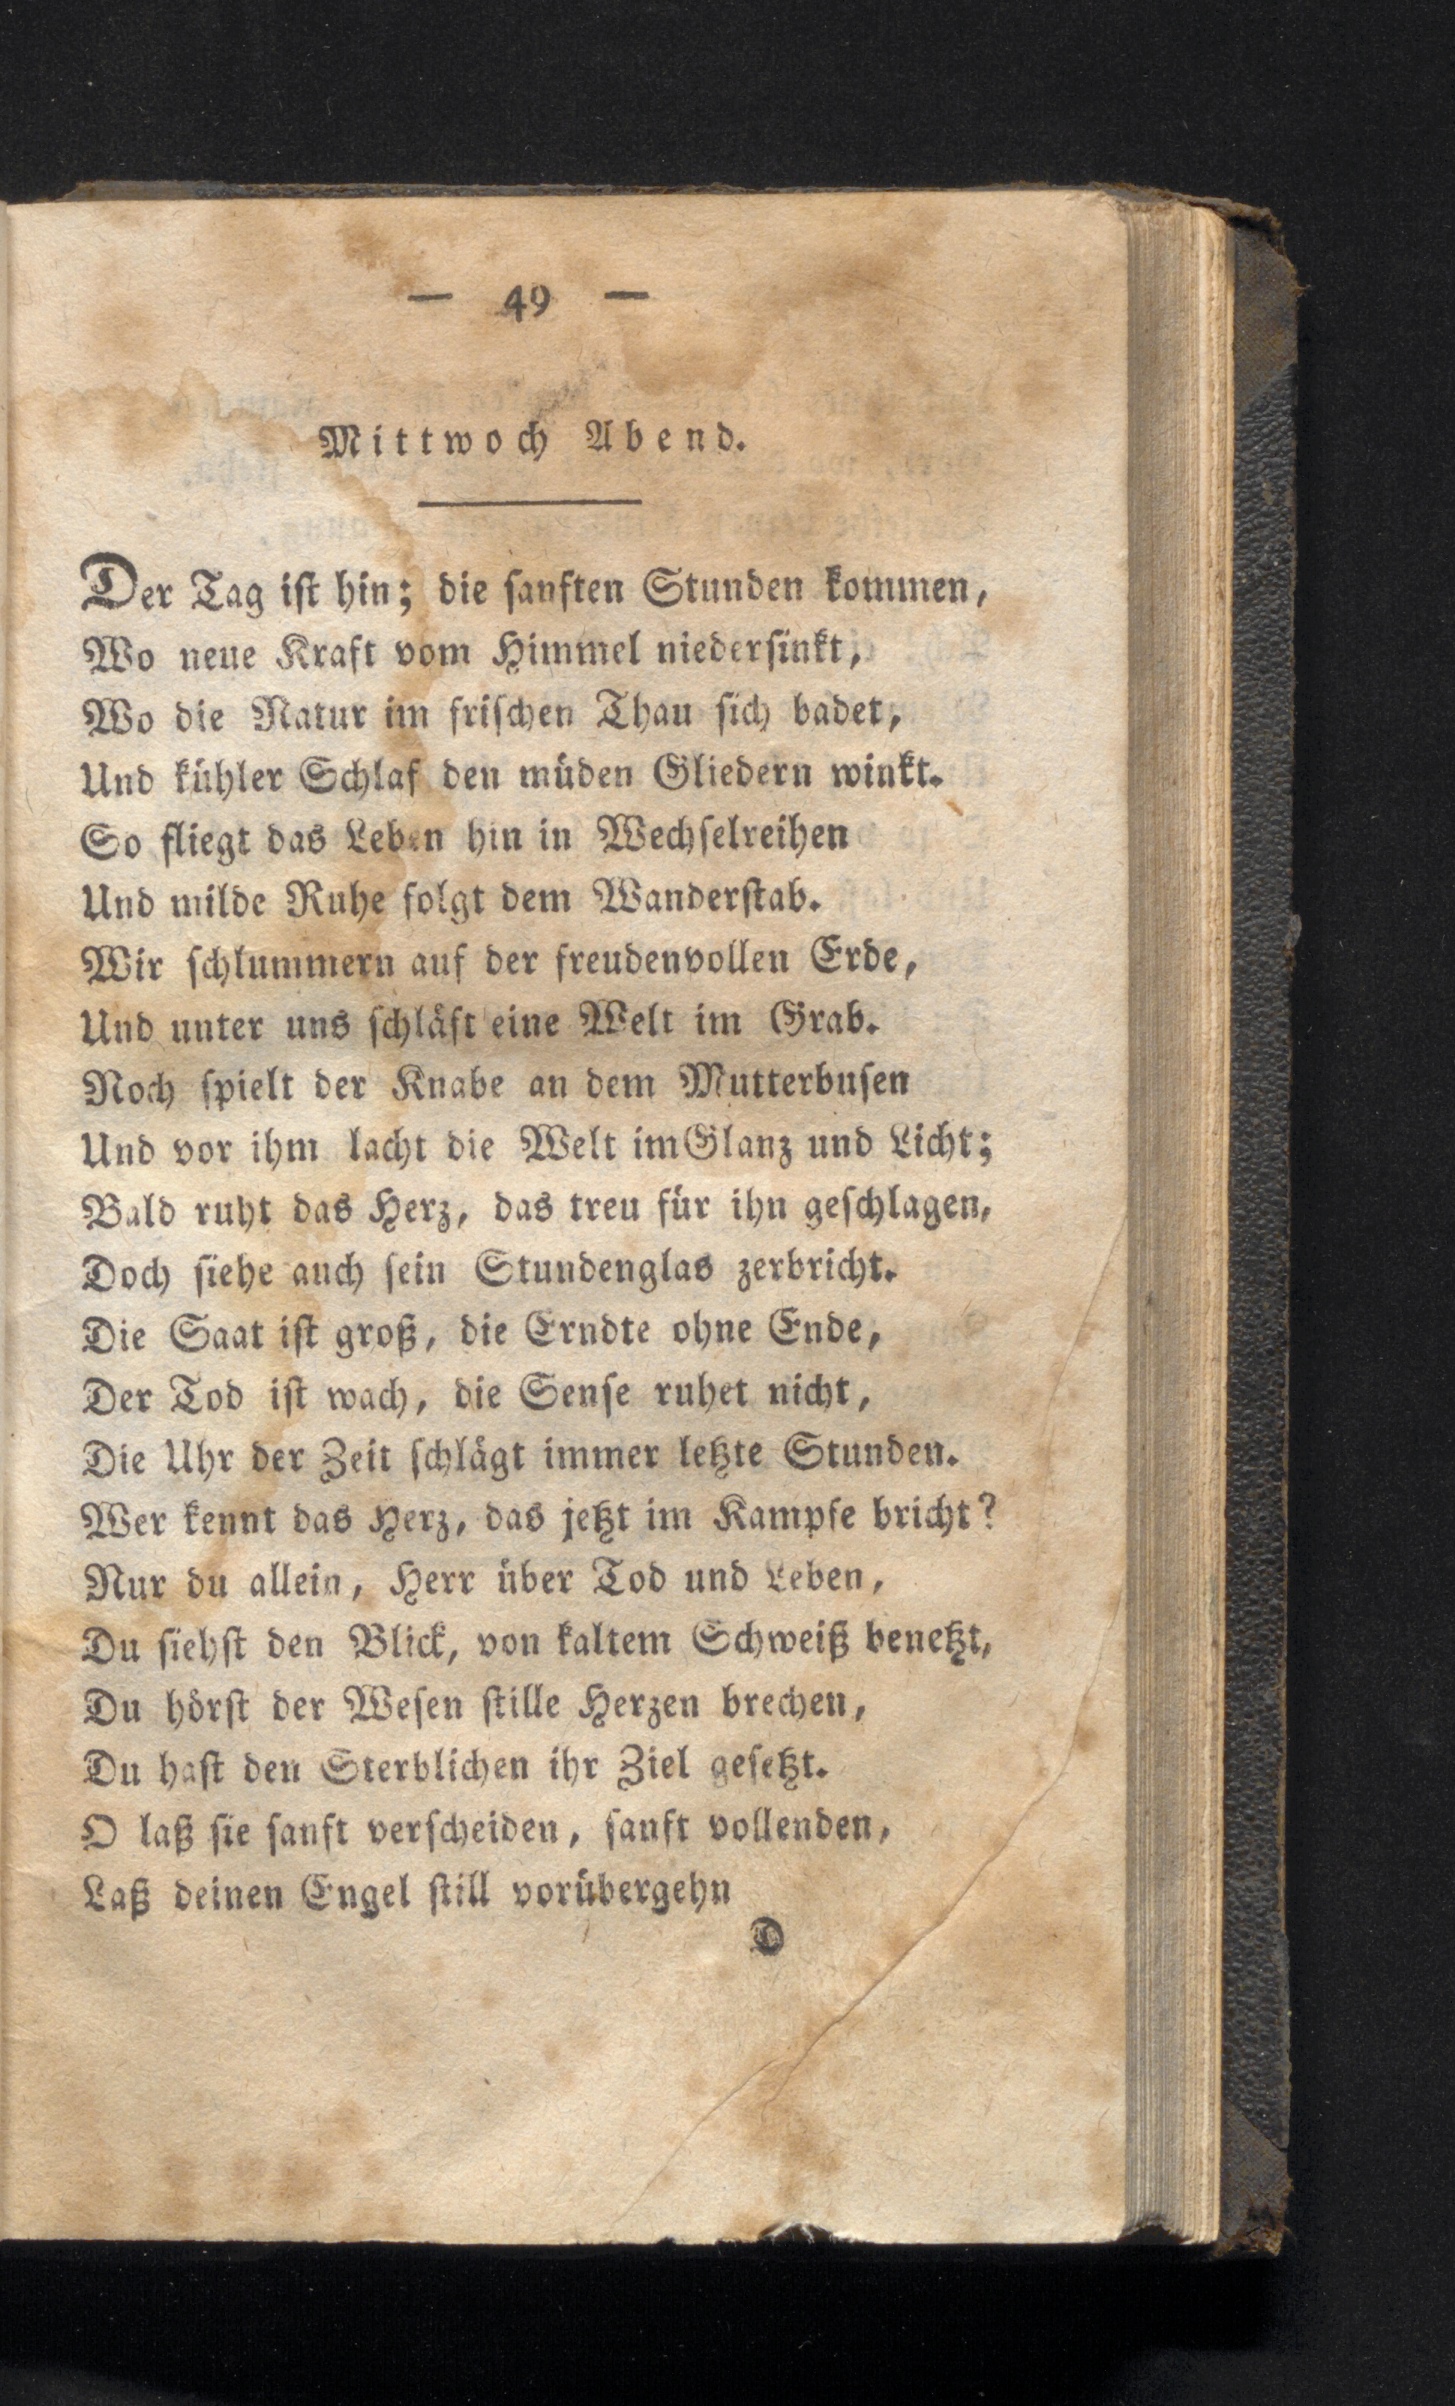 — 49 —
Mittwoch Abend.
Der Tag iſt hin; die ſanften Stunden kommen,
Wo neue Kraft vom Himmel niederſinkt,
Wo die Natur im friſchen Thau ſich badet,
Und kühler Schlaf den müden Gliedern winkt.
So fliegt das Leben hin in Wechſelreihen
Und milde Ruhe folgt dem Wanderſtab.
Wir ſchlummern auf der freudenvollen Erde,
Und unter uns ſchläft eine Welt im Grab.
Noch ſpielt der Knabe an dem Mutterbuſen
Und vor ihm lacht die Welt im Glanz und Licht;
Bald ruht das Herz, das treu für ihn geſchlagen,
Doch ſiehe auch ſein Stundenglas zerbricht.
Die Saat iſt groß, die Erndte ohne Ende,
Der Tod iſt wach, die Senſe ruhet nicht,
Die Uhr der Zeit ſchlägt immer letzte Stunden.
Wer kennt das Herz, das jetzt im Kampfe bricht?
Nur du allein, Herr über Tod und Leben,
Du ſiehſt den Blick, von kaltem Schweiß benetzt,
Du hörſt der Weſen ſtille Herzen brechen,
Du haſt den Sterblichen ihr Ziel geſetzt.
O laß ſie ſanft verſcheiden, ſanft vollenden,
Laß deinen Engel ſtill vorübergehn
D